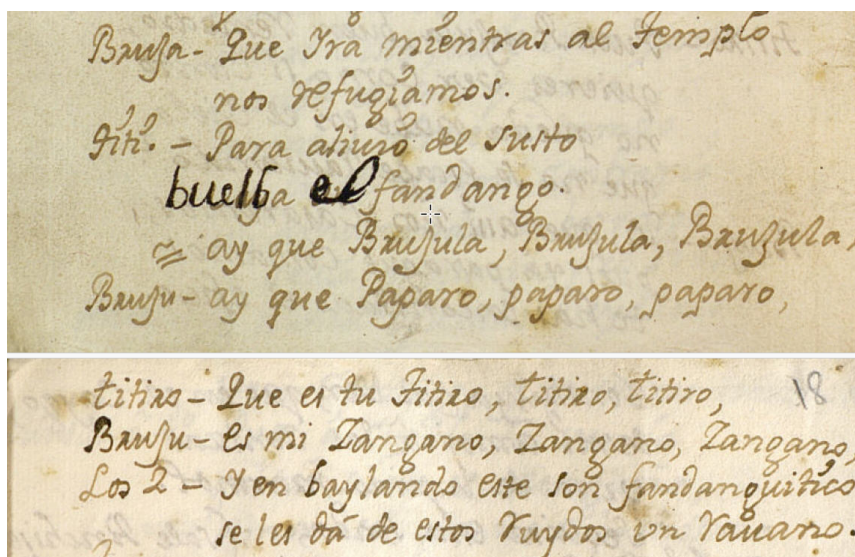 Bruja - Que Ira mientras al templo
nos refugiamos.
titi.º - Para alivio del susto
buelba el fandango.
ay que Brujula, Brujula, Brujula,
Bruju - ay que Paparo, paparo, paparo,
titiro - Que es tu titiro, titiro, titiro, 81
Bruju - es mi Zangano, Zangano, Zangano,
Los 2 - Y en baylando este son fandanguitico
se les dá de estos ruydos un ravano.